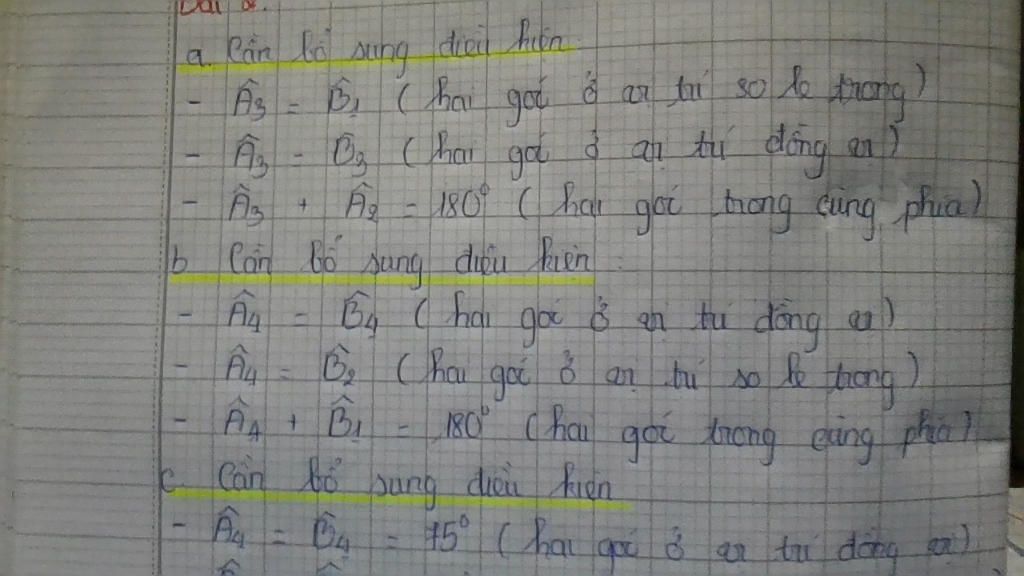 Bài 2.
a. Cần bổ sung điều kiện:
- Â₃ = B̂₁ ( hai góc ở vị trí so le trong)
- Â₃ = B̂₃ ( hai góc ở vị trí đồng vị)
- Â₃ + Â₂ = 180⁰ ( hai góc trong cùng phía)
b Cần bổ sung điều kiện :
- Â₄ = B̂₄ ( hai góc ở vị trí đồng vị)
- Â₄ = B̂₂ ( hai góc ở vị trí so le trong)
- Â₄ + B̂₁ = 180⁰ ( hai góc trong cùng phía)
c. Cần bổ sung điều kiện
- Â₄ = B̂₄ = 75⁰ ( hai góc ở vị trí đồng vị)